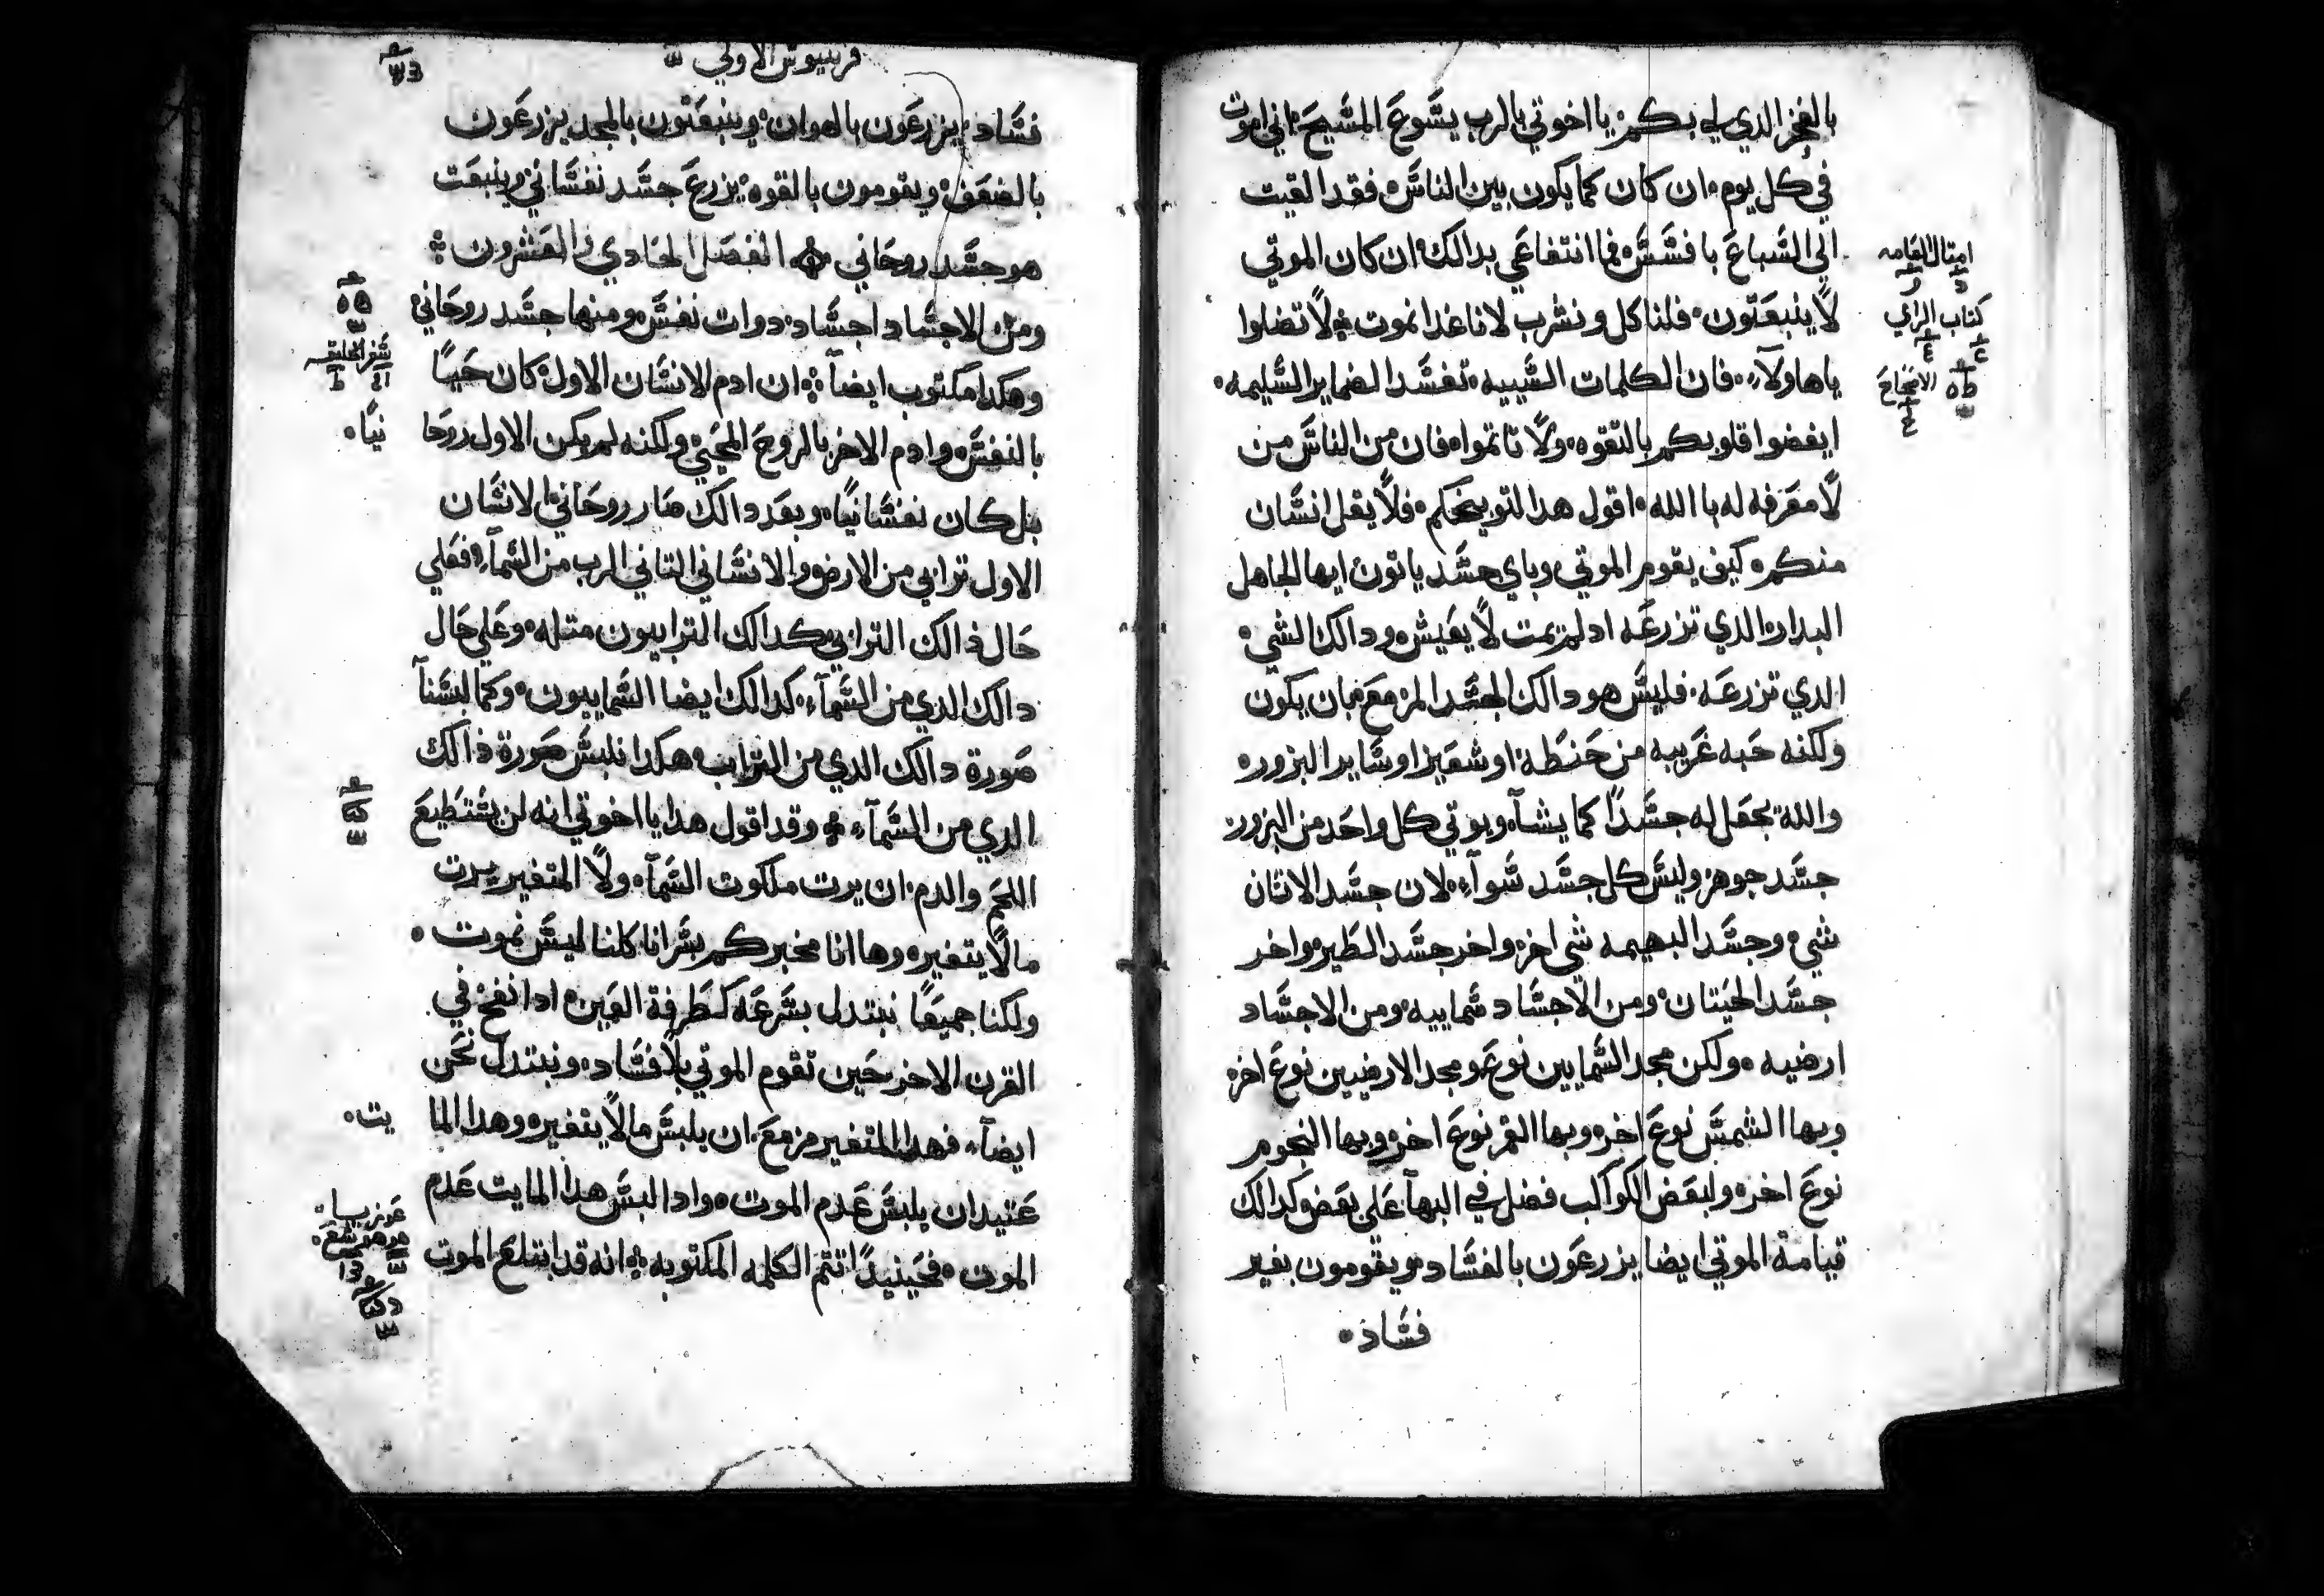 بالفخر الدي لي بكم يا اخوتي بالرب يسوع المسيح اني اموت
في كل يوم ان كان كما يكون بين الناس فقد القيت
الي السباع بافسس فما انتفاعي بدالك ان كان الموتي
لا ينبعتون فلناكل ونشرب لاننا غدا نموت لا تضلوا
ياهاولاء فان الكلمات السييه تفسد الضماير السليمه
ايقضوا قلوبكم بالتقوه ولا تاتموا فان من الناس من
لا معرفه له باالله اقول هدا لتوبيخكم فلا يقل انسان
منكم كيف يقوم الموتي وباي جسد ياتون ايها الجاهل
البدار الدي تزرعه اد لم يمت لا يعيش ودالك الشي
الدي تزرعه فليس هو دالك الجسد المزمع بان يكون
ولكنه حبه غريبه من حنطه او شعير او ساير البزور
والله يجعل له جسدا كما يشآ ويوتي كل واحد من البزور
جسد جوهره وليس كل جسد سوآء لان جسد الانسان
شي وجسد البهيمه شي اخر واخر جسد الطير واخر
جسد الحيتان ومن الاجساد سماييه ومن الاجساد
ارضيه ولكن مجد السمايين نوع ومجد الارضيين نوع اخر
وبها الشمس نوع اخر وبها القمر نوع اخر وبها النجوم
نوع اخر ولبعض الكواكب فضل في البهآ علي بعض كدالك
قيامة الموتي ايضا يزرعون بالفساد ويقومون بغير
فساد
امتال العامه
كتاب الراي
الاصحاح
قرنتيوس الاولي
فساد يزرعون بالهوان وينبعتون بالمجد يزرعون
بالضعف ويقومون بالقوه يزرع جسد نفساني وينبعت
هو جسد روحاني الفصل الحادي والعشرون
ومن الاجساد اجساد دوات نفس ومنها جسد روحاني
وهكدا مكتوب ايضآ ان ادم الانسان الاول كان حيا
بالنفس وادم الاخر بالروح المحيي ولكنه لم يكن الاول روحا
نيا
بل كان نفسانيا وبعد دالك صار روحاني الانسان
الاول ترابي من الارض والانساني التاني الرب من السمآء فعلي
حال ذالك الترابي كدالك الترابيون متله وعلي حال
دالك الدي من السمآء كدالك ايضا السماييون وكما لبسنآ
صورة دالك الدي من التراب هكدا نلبس صورة ذالك
الدي من السمآء وقد اقول هدا يا اخوتي انه لن يستطيع
اللحم والدم ان يرت ملكوت السمآ ولا المتغير يرت
ما لا يتغير وها انا مخبركم بسر انا كلنا ليس نموت
ولكنا جميعا نبتدل بسرعه كطرفة العين ادا نفخ في
القرن الاخر حين تقوم الموتي بلا فساد ونبتدل نحن
ايضآ فهدا المتغير مزمع ان يلبس ما لا يتغير وهدا الما
يت
عتيد ان يلبس عدم الموت وادا لبس هدا المايت عدم
الموت فحينيدا تتم الكلمه المكتوبه انه قد ابتلع الموت
سفر الخليقه